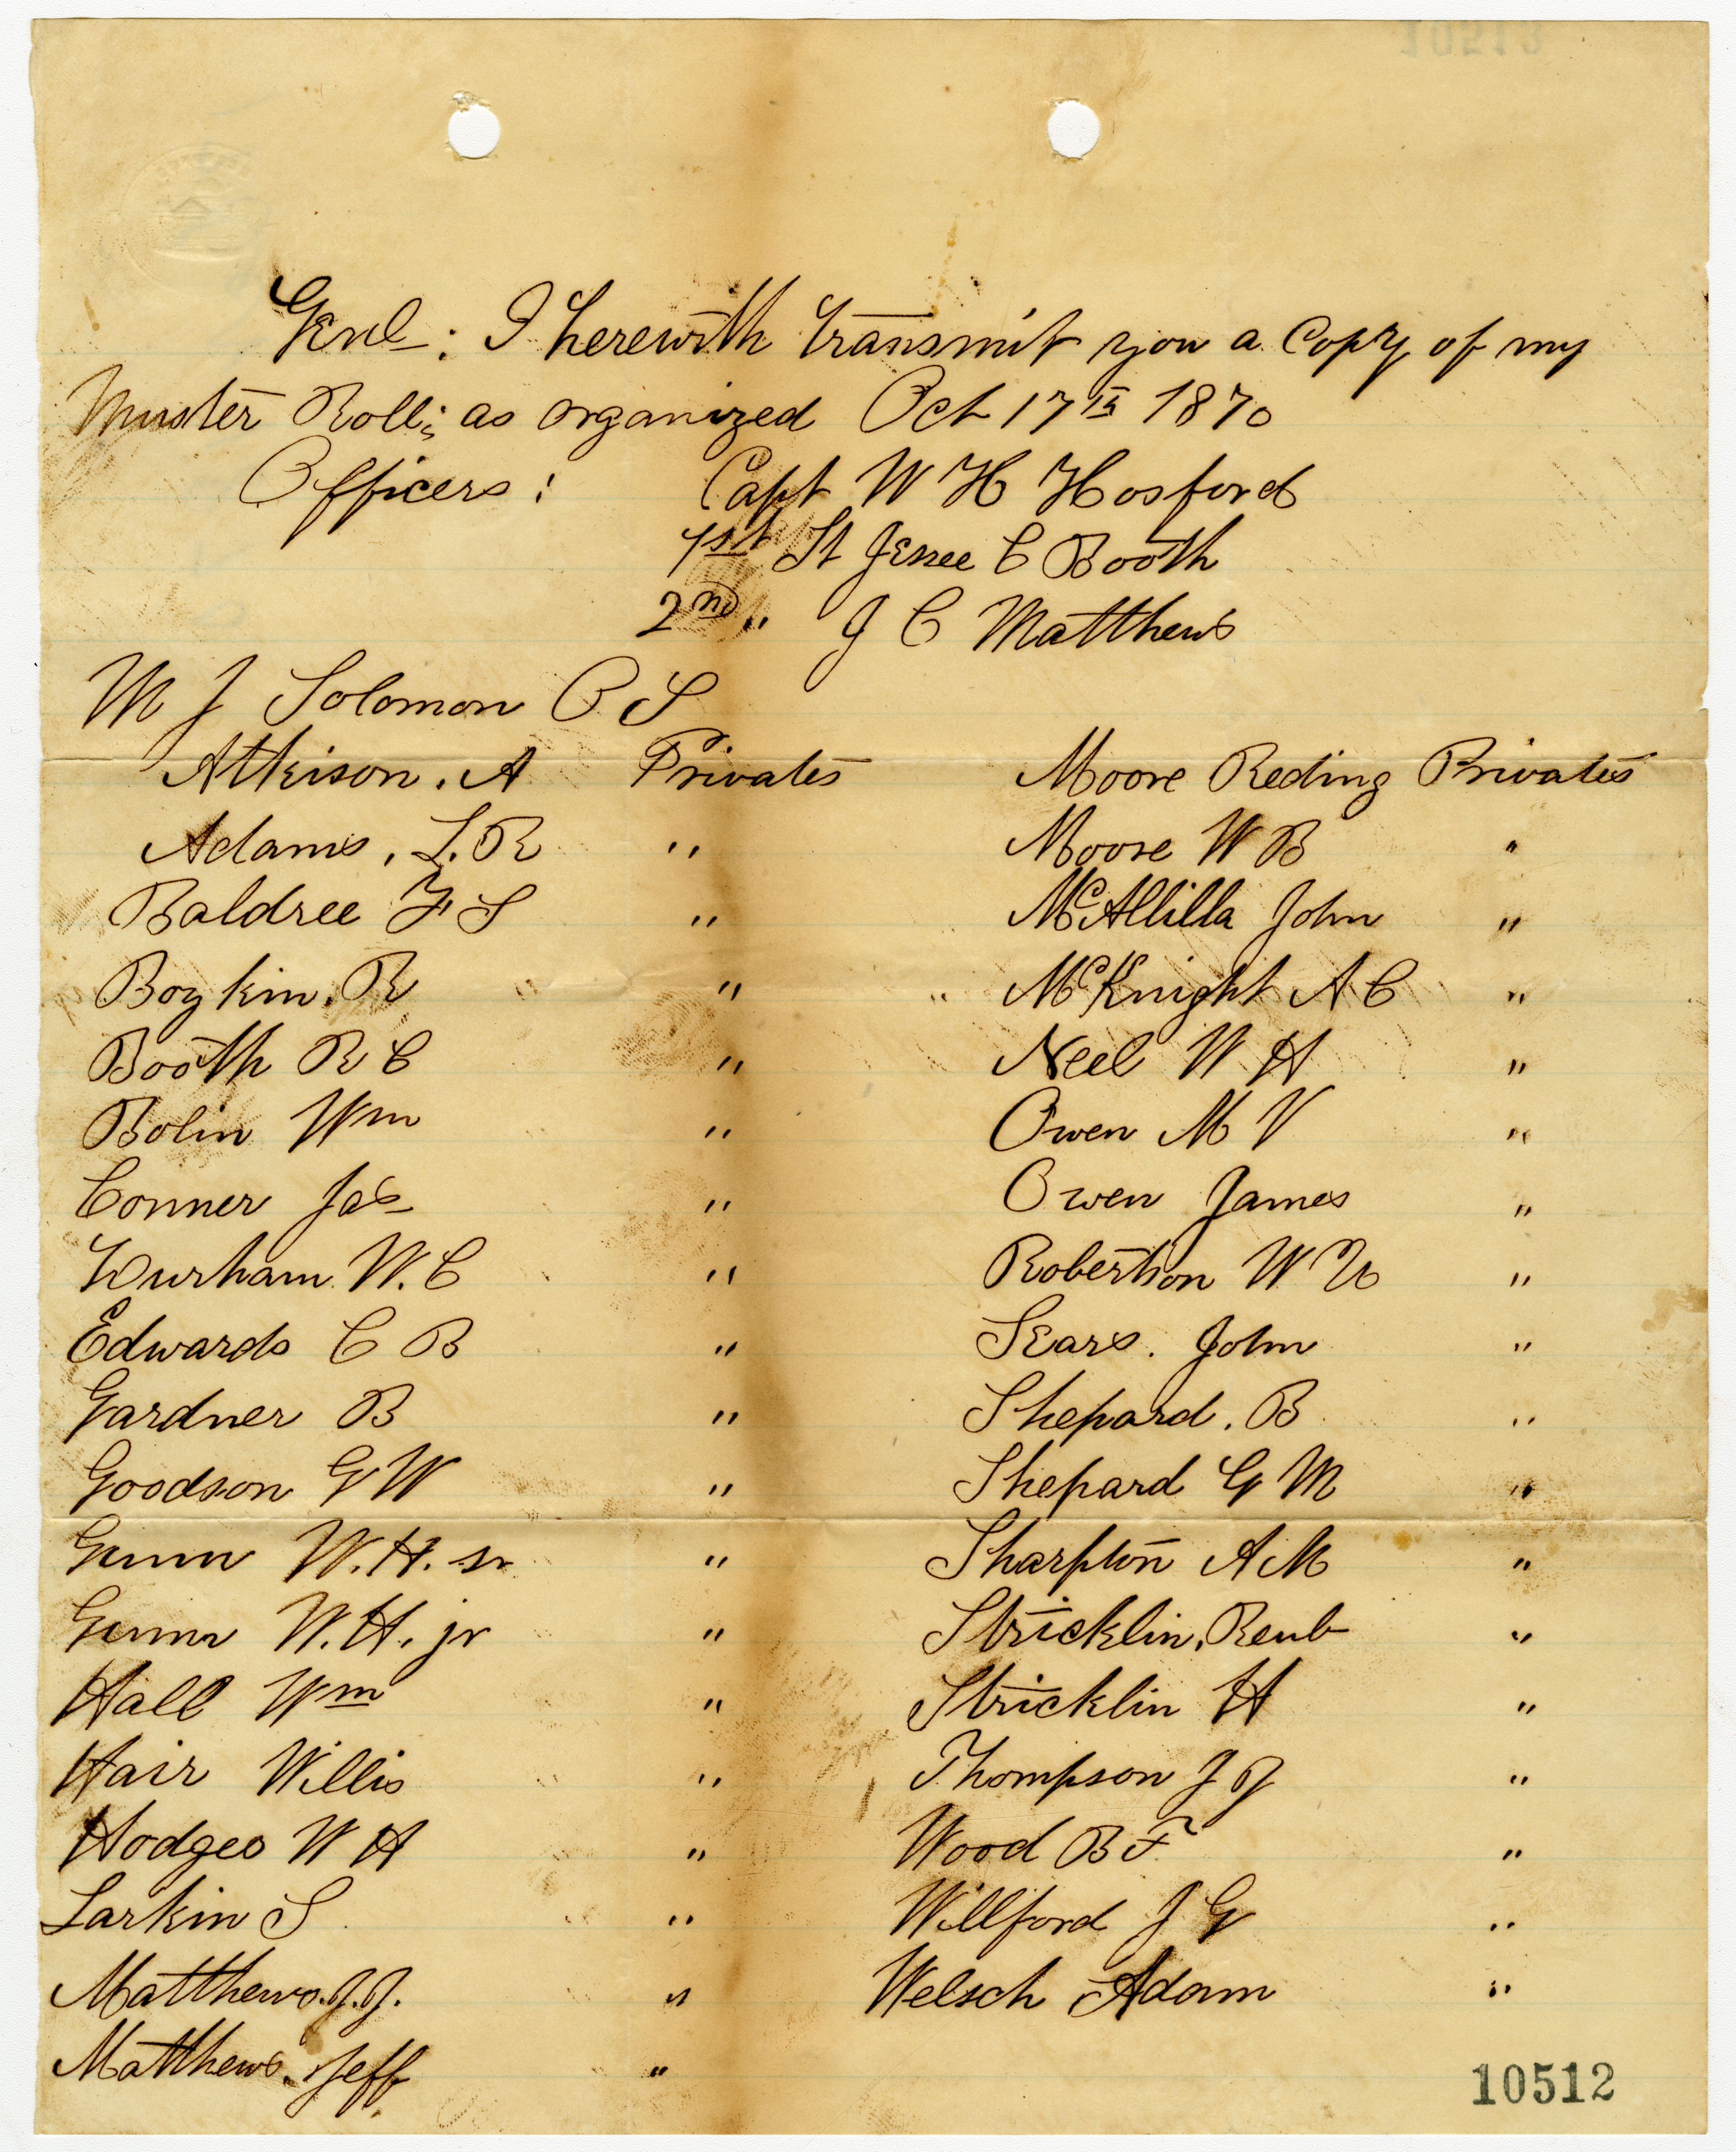 Genl: I herewith transmit you a Copy of my
Muster Roll; as organized Oct 17th 1870
Officers: Capt W H Hosford
1st Lt Jessee C Booth
2nd " J C Matthews
M J Solomon O S
Atkison. A Privates Moore Reding Privates
Adams, L. R " Moore W B "
Baldree F S " McAllilla John "
Boykin. R " McKnight A C "
Booth R C " Neel W H "
Bolin Wm " Owen M V "
Conner Jas " Owen James "
Durham W. C " Robertson W "
Edwards C B " Sears. John "
Gardner B " Shepard. B "
Goodson G W " Shepard G M "
Gunn W. H. sr " Sharpton A M "
Gunn W. H. jr " Stricklin, Reub "
Hall Wm " Stricklin H "
Hair Willis " Thompson J J "
Hodges W H " Wood B F "
Larkin S " Willford J G "
Matthews. J. J. " Welsch Adam "
Matthews. Jeff "
10512